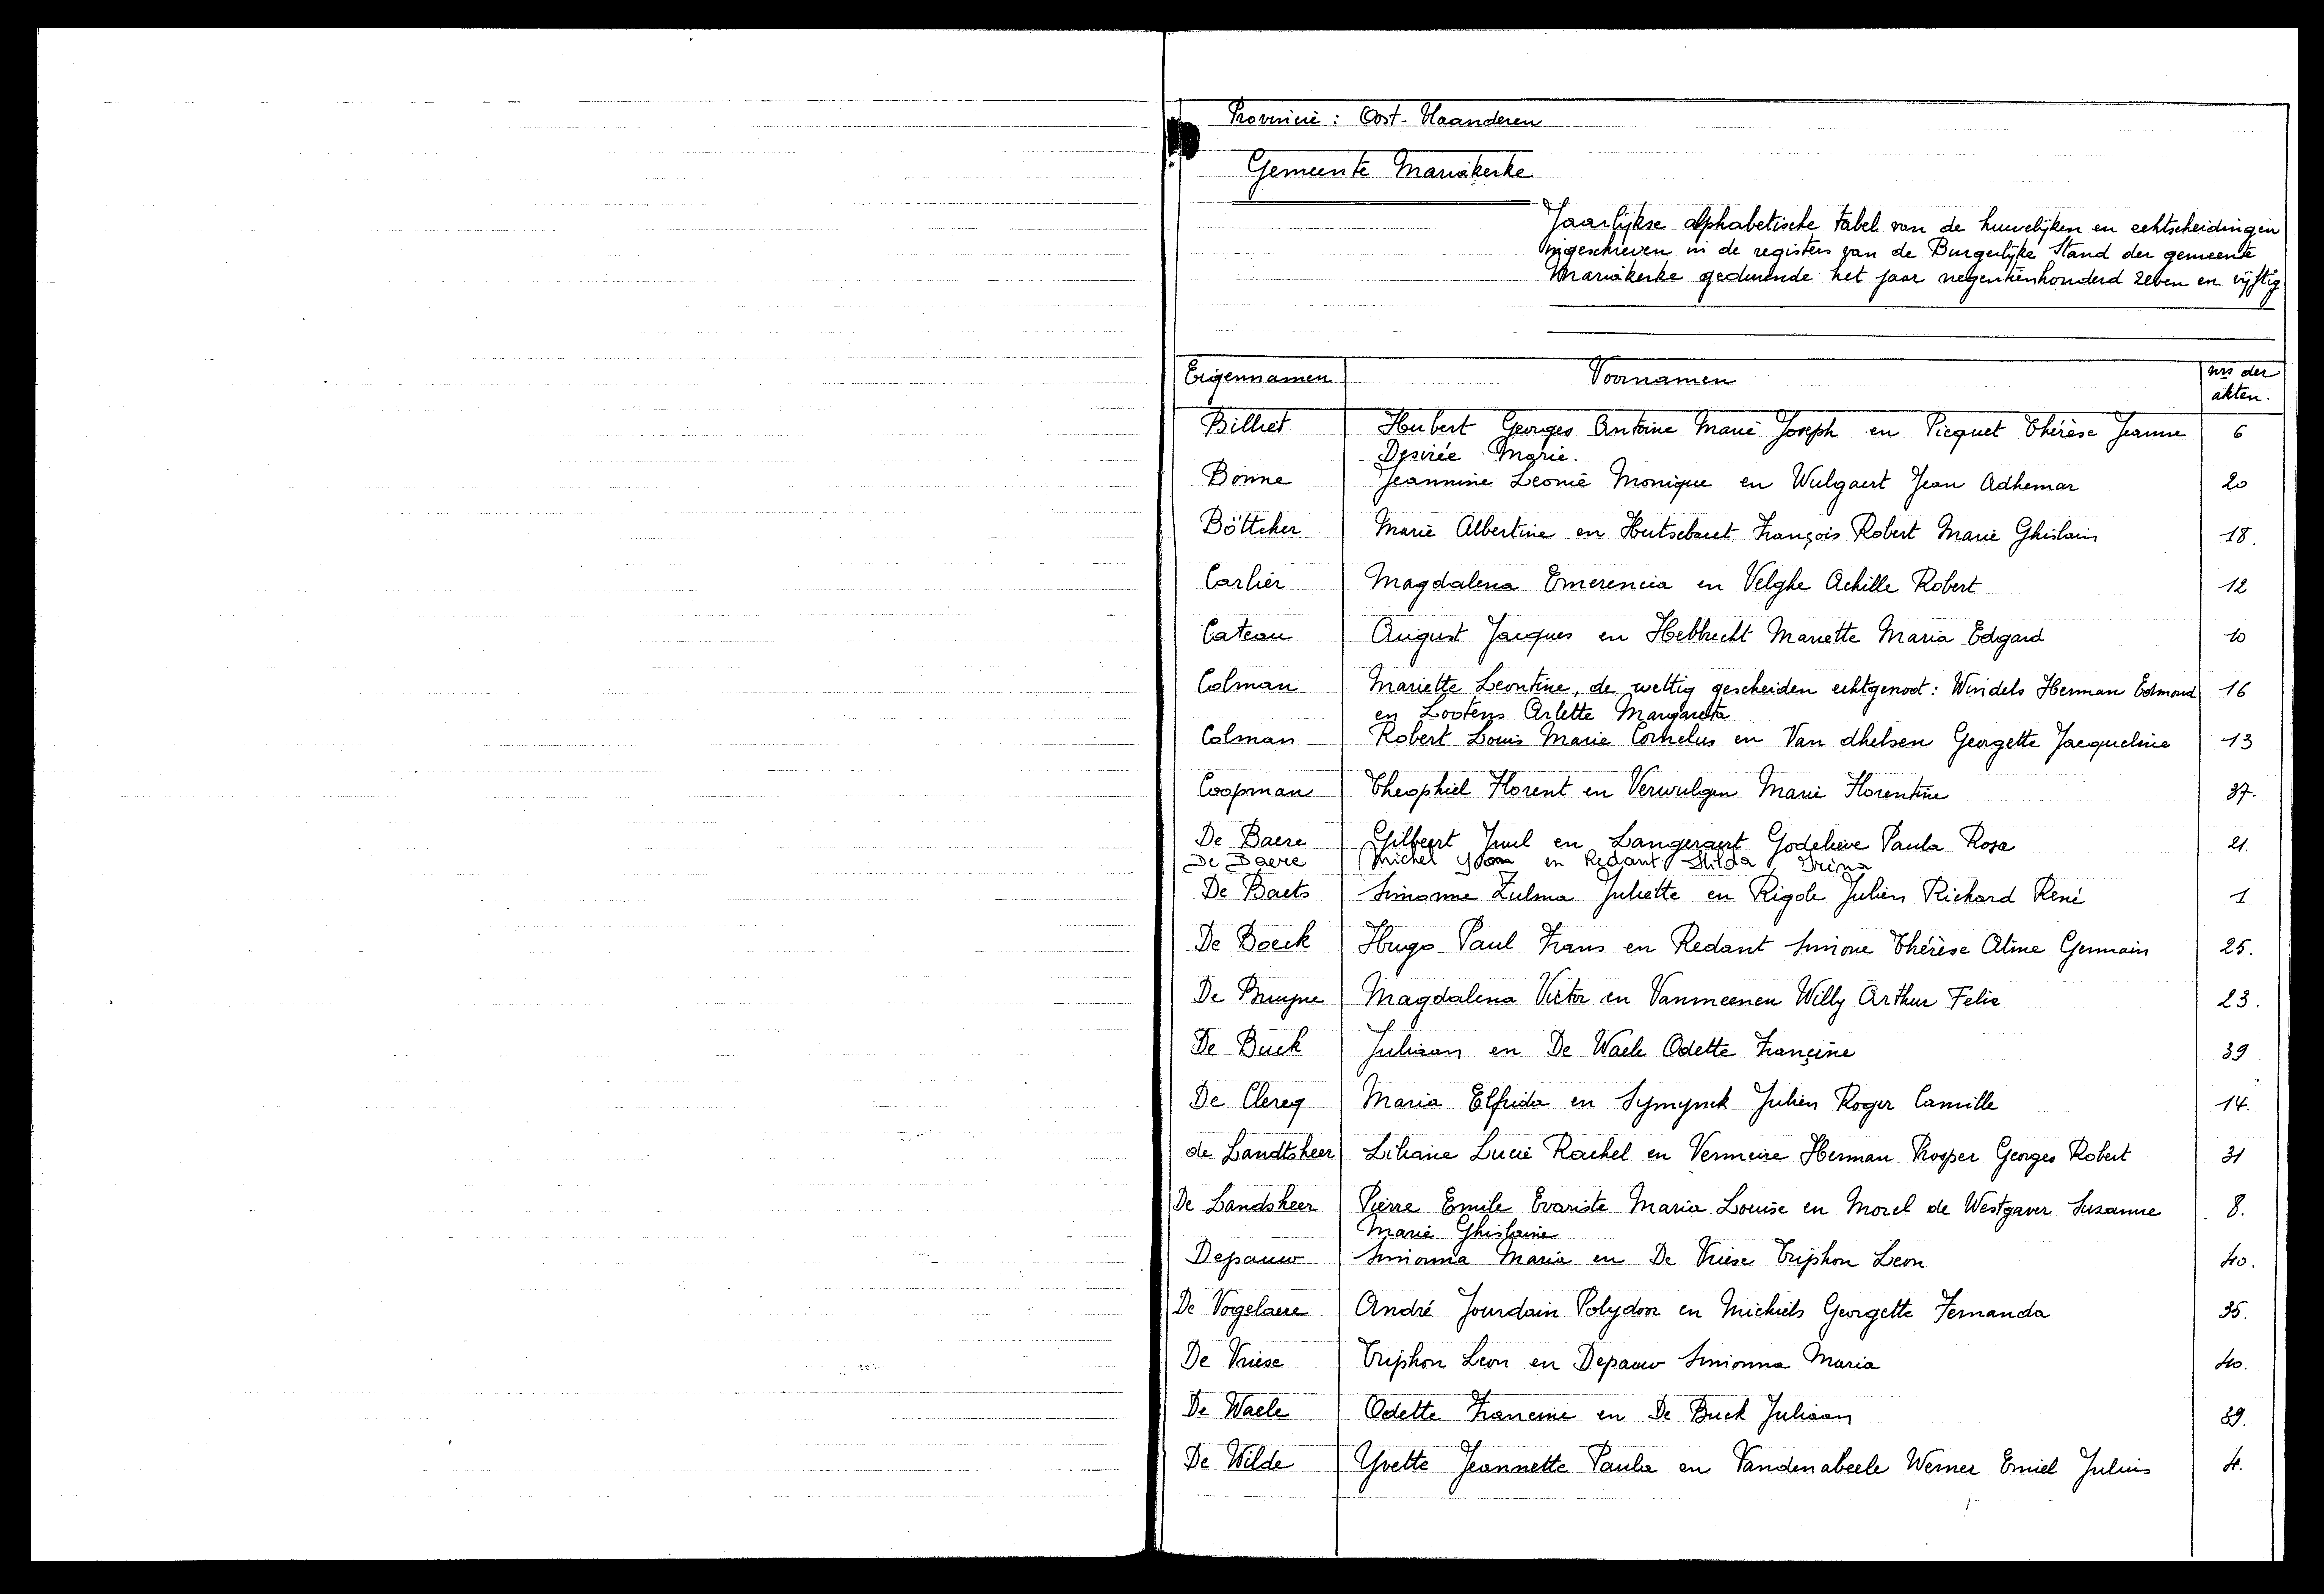 Provincie : Oost-Vlaanderen
Gemeente Mariakerke
Jaarlijkse alphabetische tabel van de huwelijken en echtscheidingen
ingeschreven in de registers van de Burgerlijke Stand der gemeente
Mariakerke gedurende het jaar negentienhonderd zeven en vijftig
Eigennamen Voornamen nrs der
akten.
Billiet Hubert Georges Antoine Marie Joseph en Picquet Thérèse Jeanne 6
Desirée Marie.
Bonne Jeannine Leonie Monique en Wulgaert Jean Adhemar 20
Böttcher Marie Albertine en Hutsebaut François Robert Marie Ghislain 18.
Carlier Magdalena Emerencia en Velghe Achille Robert 12
Cateau August Jacques en Hebbrecht Mariette Maria Edgard 10
Colman Mariette Leontine, de wettig gescheiden echtgenoot: Windels Herman Edmond 16
en Lootens Arlette Margareta
Colman Robert Louis Marie Cornelus en Van dhelsen Georgette Jacqueline 13
Coopman Theophiel Florent en Verwulgen Marie Florentine 37.
De Baere Gilbeert Juul en Langeraert Godelieve Paula Rosa 21.
De Baere Michel en Redant Hilda Irina
De Baets Simonne Zulma Juliette en Rigole Julien Richard René 1
De Boeck Hugo Paul Frans en Redant Simone Thérèse Aline Germain 25.
De Bruyne Magdalena Victor en Vanmeenen Willy Arthur Felix 23.
De Buck Juliaan en De Waele Odette Francine 39
De Clercq Maria Elfrida en Symynck Julien Roger Camille 14.
de Landtsheer Liliane Lucie Rachel en Vermeire Herman Prosper Georges Robert 31
De Landsheer Pierre Emile Evariste Maria Louise en Morel de Westgaver Suzanne 8.
Marie Ghislaine
Depauw Simonna Maria en De Vriese Triphon Leon 40.
De Vogelaere André Jourdain Polydoor en Michiels Georgette Fernanda 35.
De Vriese Triphon Leon en Depauw Simonna Maria 40.
De Waele Odette Francine en De Buck Juliaan 39.
De Wilde Yvette Jeannette Paula en Vandenabeele Werner Emiel Julius 4.